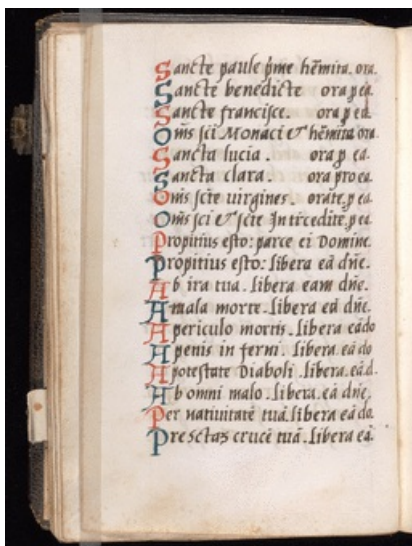 Sancte paule p̄me hēmita. ora.
Sancte benedicte ora p ea.
Sancte francisce. ora p ea.
Om̄s sc̄i Monaci & hēmitæ ora
Sancta lucia. ora p ea.
Sancta clara. ora pro ea.
Om̄s sc̄te virgines. orate. p ea.
Om̄s sc̄i & sc̄te Intrcedite. p ea.
Propitius esto: parce ei Domine.
Propitius esto: Libera eā dn̄e.
Ab ira tua. Libera eam dn̄e.
A mala morte. Libera eā dn̄e.
A periculo mortis. Libera eā do
A penis in ferni. Libera. eā do
A potestate Diaboli. Libera eā. d.
Ab omni malo. Libera eā dn̄e.
Per nativitatē tuā. Libera eā do.
Pre sctaꝫ crucē tuā. Libera eā.